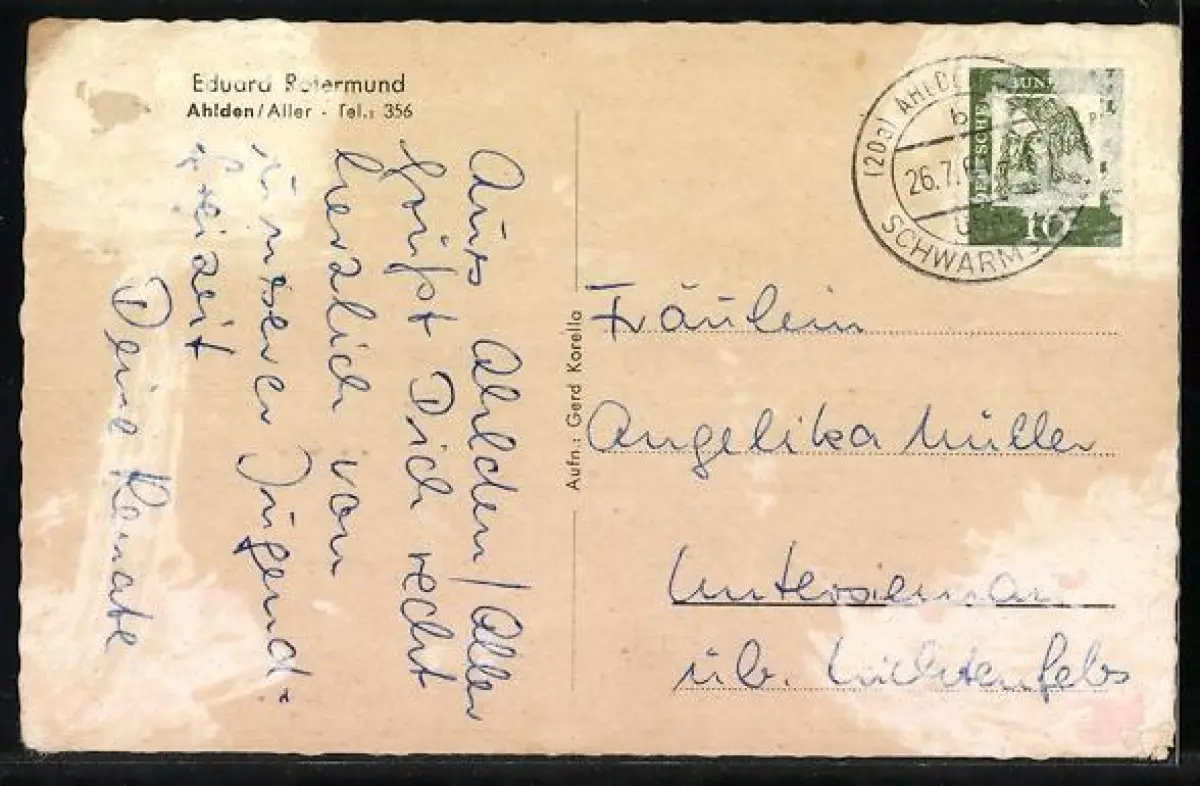 Eduard Rotermund
Ahlden/Aller - Tel.: 356
Aus Ahlden/Aller
grüßt Dich recht
herzlich von
unserer Jugend-
freizeit
Deine Renate
Aufn.: Gerd Korella
(20a) AHLD
b
26.7.6
ü
SCHWARMS
DEUTSCHE BUN P
10
Fräulein
Angelika Müller
Untersiemau
üb. Lichtenfels